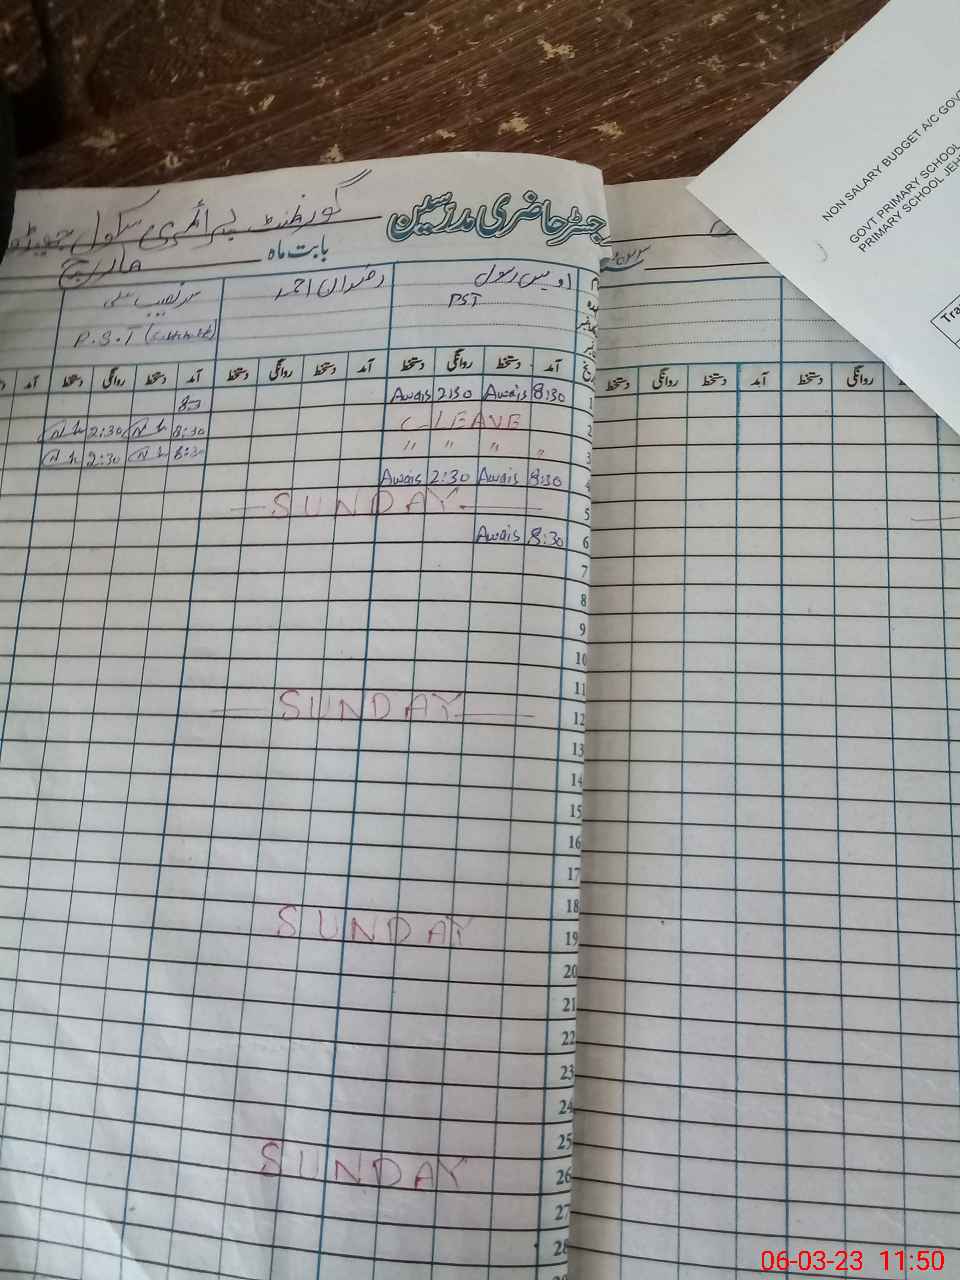 رجسٹر حاضری مدرسین گورنمنٹ پرائمری سکول
بابت ماہ مارچ
اویس رسول رضوان احمد
PST P.S.T
آمد دستخط روانگی دستخط آمد دستخط روانگی دستخط آمد دستخط روانگی دستخط آمد
دستخط روانگی دستخط آمد دستخط روانگی
1 8:30 Awais 2:30 Awais
2 LEAVE 8:30 2:30
3 〃 〃 〃 〃 8:30 2:30
4 8:30 Awais 2:30 Awais
5 SUNDAY
6 8:30 Awais
7
8
9
10
11
12 SUNDAY
13
14
15
16
17
18
19 SUNDAY
20
21
22
23
24
25
26 SUNDAY
27
28
NON SALARY BUDGET A/C GOVT
GOVT PRIMARY SCHOOL
PRIMARY SCHOOL JEH
Trai
06-03-23 11:50